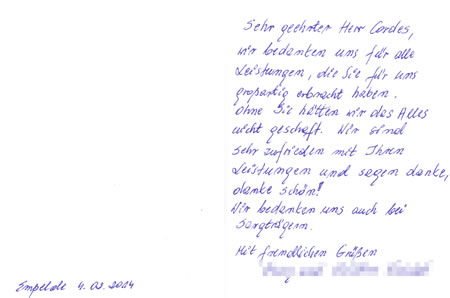 Sehr geehrter Herr Cordes,
wir bedanken uns für alle
Leistungen, die Sie für uns
großartig erbracht haben.
Ohne Sie hätten wir das Alles
nicht geschaft. Wir sind
sehr zufrieden mit Ihren
Leistungen und sagen danke,
danke schön!
Wir bedanken uns auch bei
Sargträgern.
Mit freundlichen Grüßen
Empelde 4.02.2014